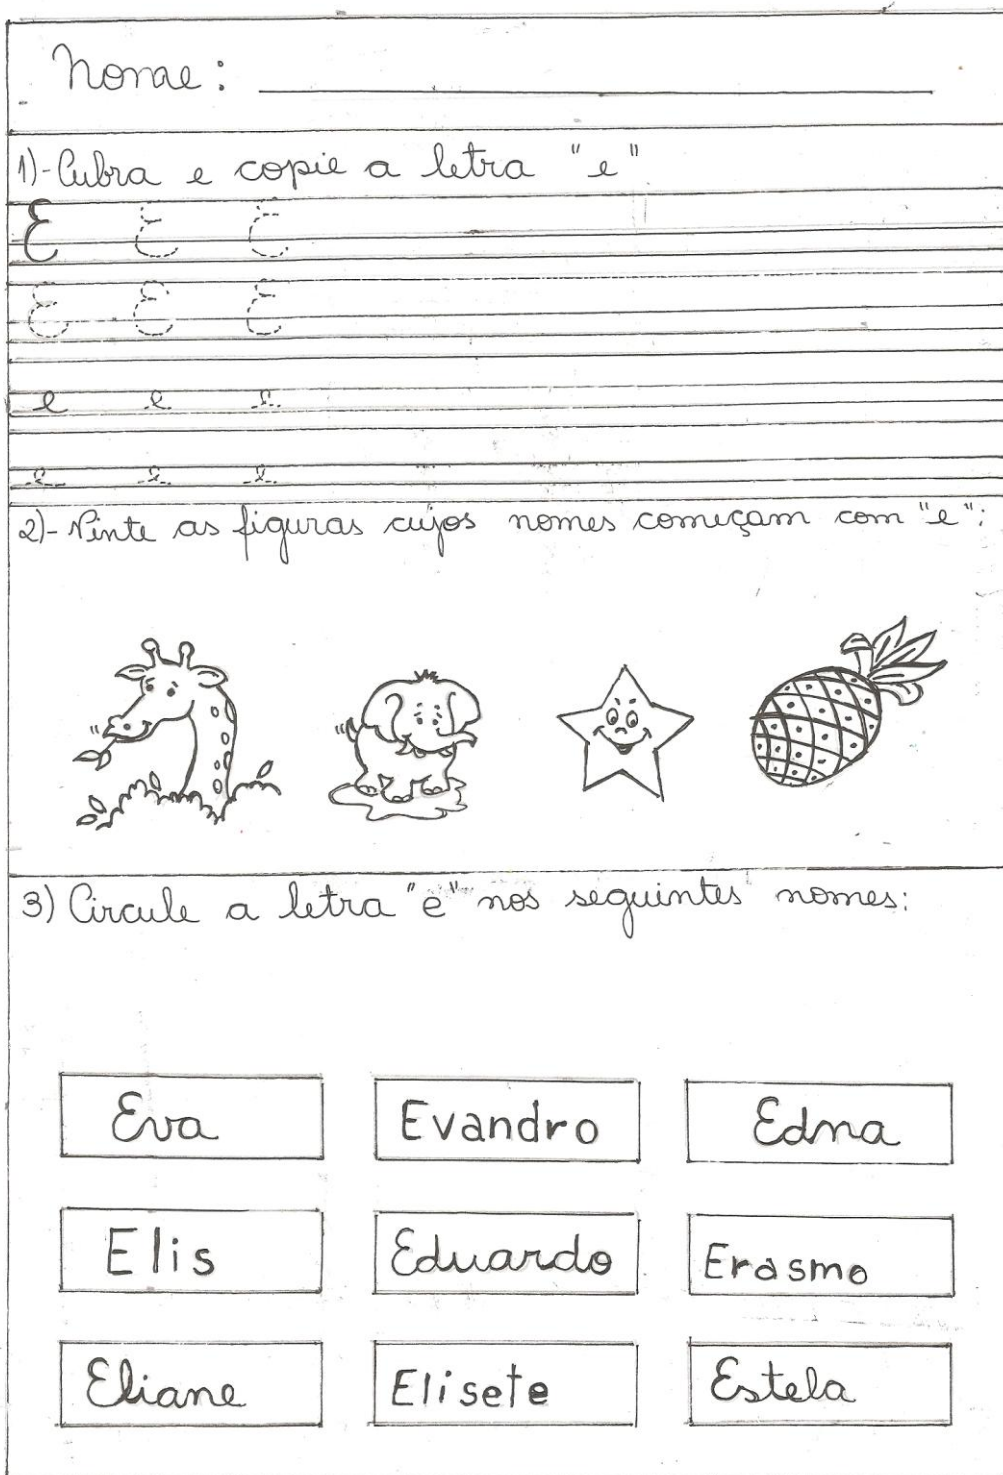 Nome:
1)- Cubra e copie a letra "e"
E E E
E E E
e e e
e e e
2)- Pinte as figuras cujos nomes começam com "e":
3) Circule a letra "e" nos seguintes nomes:
Eva Evandro Edna
Elis Eduardo Erasmo
Eliane Elisete Estela